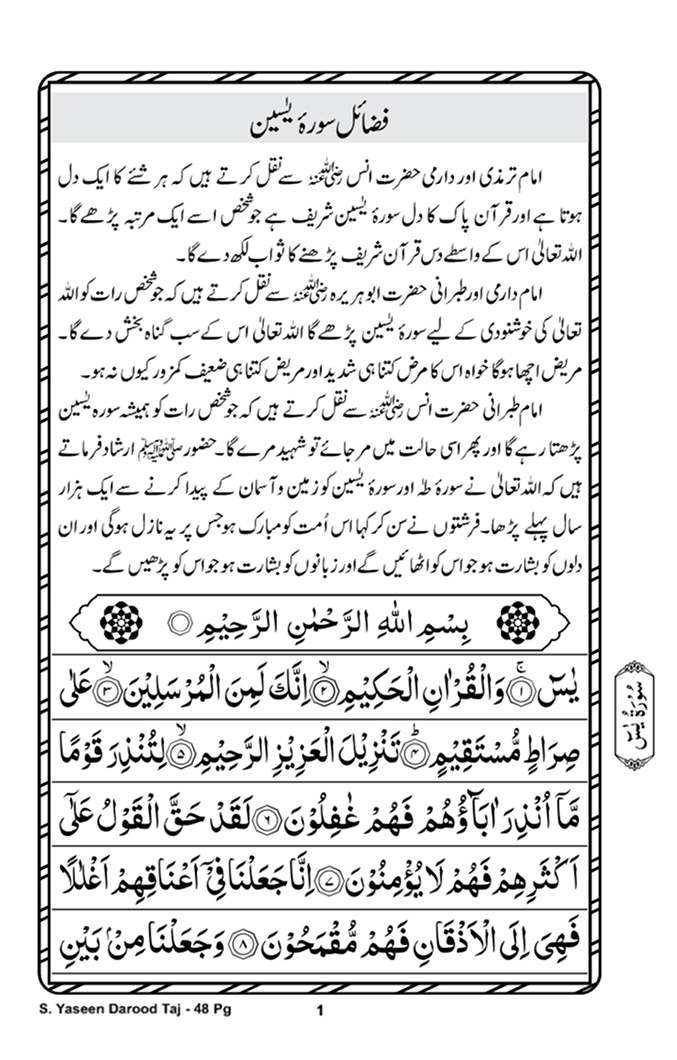 فضائل سورۂ یٰسین
امام ترمذی اور دارمی حضرت انس رضی اللہ عنہ سے نقل کرتے ہیں کہ ہر شئے کا ایک دل
ہوتا ہے اور قرآن پاک کا دل سورۂ یٰسین شریف ہے جو شخص اسے ایک مرتبہ پڑھے گا۔
اللہ تعالیٰ اس کے واسطے دس قرآن شریف پڑھنے کا ثواب لکھ دے گا۔
امام دارمی اور طبرانی حضرت ابو ہریرہ رضی اللہ عنہ سے نقل کرتے ہیں کہ جو شخص رات کو اللہ
تعالیٰ کی خوشنودی کے لیے سورۂ یٰسین پڑھے گا اللہ تعالیٰ اس کے سب گناہ بخش دے گا۔
مریض اچھا ہوگا خواہ اس کا مرض کتنا ہی شدید اور مریض کتنا ہی ضعیف کمزور کیوں نہ ہو۔
امام طبرانی حضرت انس رضی اللہ عنہ سے نقل کرتے ہیں کہ جو شخص رات کو ہمیشہ سورہ یٰسین
پڑھتا رہے گا اور پھر اسی حالت میں مر جائے تو شہید مرے گا۔ حضور ﷺ ارشاد فرماتے
ہیں کہ اللہ تعالیٰ نے سورۂ طہٰ اور سورۂ یٰسین کو زمین و آسمان کے پیدا کرنے سے ایک ہزار
سال پہلے پڑھا۔ فرشتوں نے سن کر کہا اس اُمت کو مبارک ہو جس پر یہ نازل ہوگی اور ان
دلوں کو بشارت ہو جو اس کو اٹھائیں گے اور زبانوں کو بشارت ہو جو اس کو پڑھیں گے۔
بِسْمِ اللّٰهِ الرَّحْمٰنِ الرَّحِيْمِ ۝
يٰسٓ ۝۱ۚ وَالْقُرْاٰنِ الْحَكِيْمِ ۝۲ۙ اِنَّكَ لَمِنَ الْمُرْسَلِيْنَ ۝۳ۙ عَلٰى
صِرَاطٍ مُّسْتَقِيْمٍ ۝۴ؕ تَنْزِيْلَ الْعَزِيْزِ الرَّحِيْمِ ۝۵ۙ لِتُنْذِرَ قَوْمًا
مَّاۤ اُنْذِرَ اٰبَآؤُهُمْ فَهُمْ غٰفِلُوْنَ ۝۶ لَقَدْ حَقَّ الْقَوْلُ عَلٰۤى
اَكْثَرِهِمْ فَهُمْ لَا يُؤْمِنُوْنَ ۝۷ اِنَّا جَعَلْنَا فِيْۤ اَعْنَاقِهِمْ اَغْلٰلًا
فَهِيَ اِلَى الْاَذْقَانِ فَهُمْ مُّقْمَحُوْنَ ۝۸ وَجَعَلْنَا مِنْۢ بَيْنِ
سُوْرَةُ يٰسٓ
S. Yaseen Darood Taj - 48 Pg 1